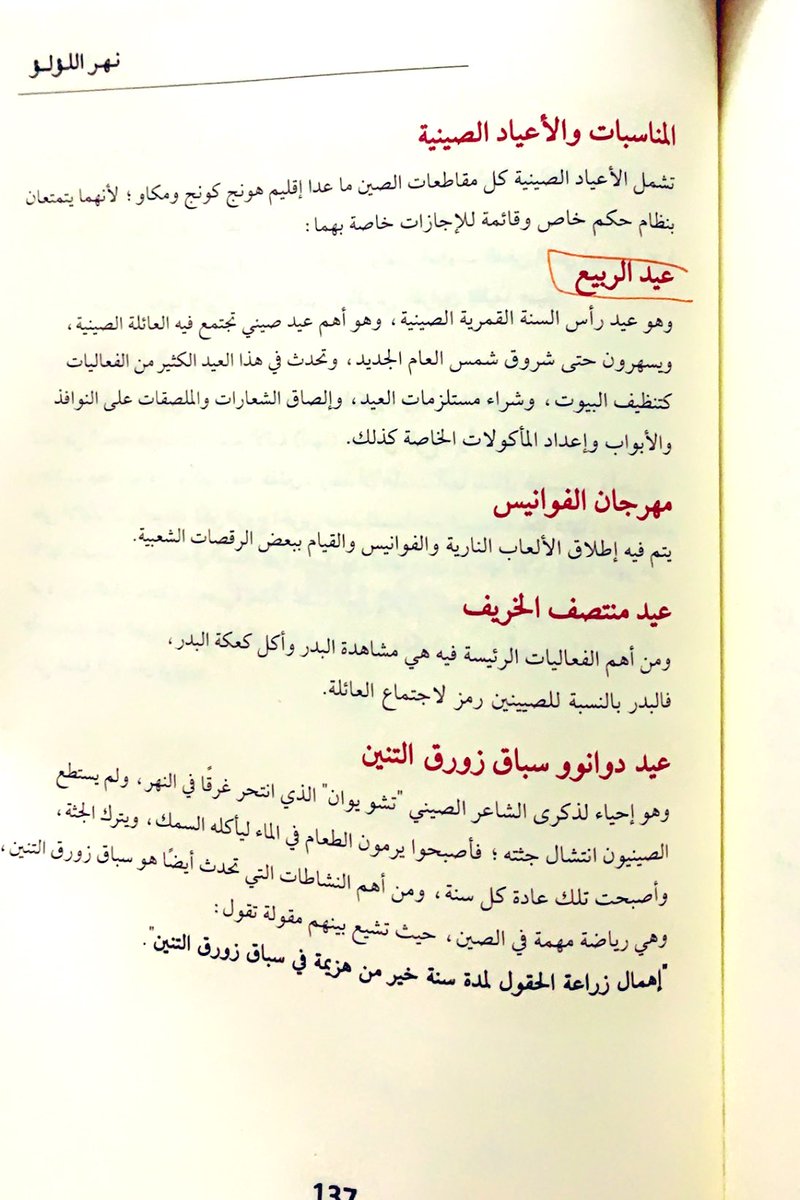 نهر اللؤلؤ
المناسبات والأعياد الصينية
تشمل الأعياد الصينية كل مقاطعات الصين ما عدا إقليم هونج كونج ومكاو ؛ لأنهما يتمتعان
بنظام حكم خاص وقائمة للإجازات خاصة بهما:
عيد الربيع
وهو عيد رأس السنة القمرية الصينية، وهو أهم عيد صيني تجتمع فيه العائلة الصينية،
ويسهرون حتى شروق شمس العام الجديد، وتحدث في هذا العيد الكثير من الفعاليات
كتنظيف البيوت، وشراء مستلزمات العيد، وإلصاق الشعارات والملصقات على النوافذ
والأبواب وإعداد المأكولات الخاصة كذلك.
مهرجان الفوانيس
يتم فيه إطلاق الألعاب النارية والفوانيس والقيام ببعض الرقصات الشعبية.
عيد منتصف الخريف
ومن أهم الفعاليات الرئيسة فيه هي مشاهدة البدر وأكل كعكة البدر،
فالبدر بالنسبة للصيينين رمز لاجتماع العائلة.
عيد دوانوو سباق زورق التنين
وهو إحياء لذكرى الشاعر الصيني "تشو يوان" الذي انتحر غرقًا في النهر، ولم يستطع
الصينيون انتشال جثته ؛ فأصبحوا يرمون الطعام في الماء ليأكله السمك، ويترك الجثة،
وأصبحت تلك عادة كل سنة، ومن أهم النشاطات التي تحدث أيضًا هو سباق زورق التنين،
وهي رياضة مهمة في الصين، حيث تشيع بينهم مقولة تقول:
"إهمال زراعة الحقول لمدة سنة خير من هزيمة في سباق زورق التنين".
137